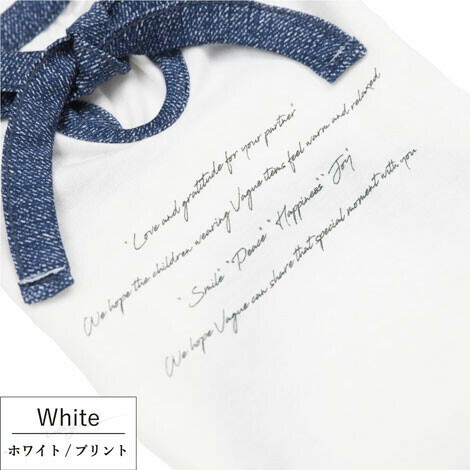 "Love and gratitude for your partner"
We hope the children wearing Vague items feel warm and relaxed
"Smile" "Peace" "Happiness" "Joy"
We hope Vague can share that special moment with you
White
ホワイト/プリント